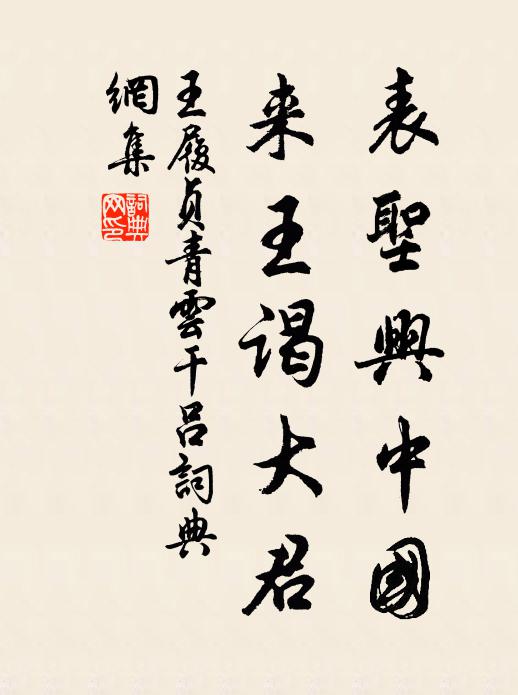 表聖興中國
来王謁大君
王履貞青雲干吕詞典
網集
詞典
网印